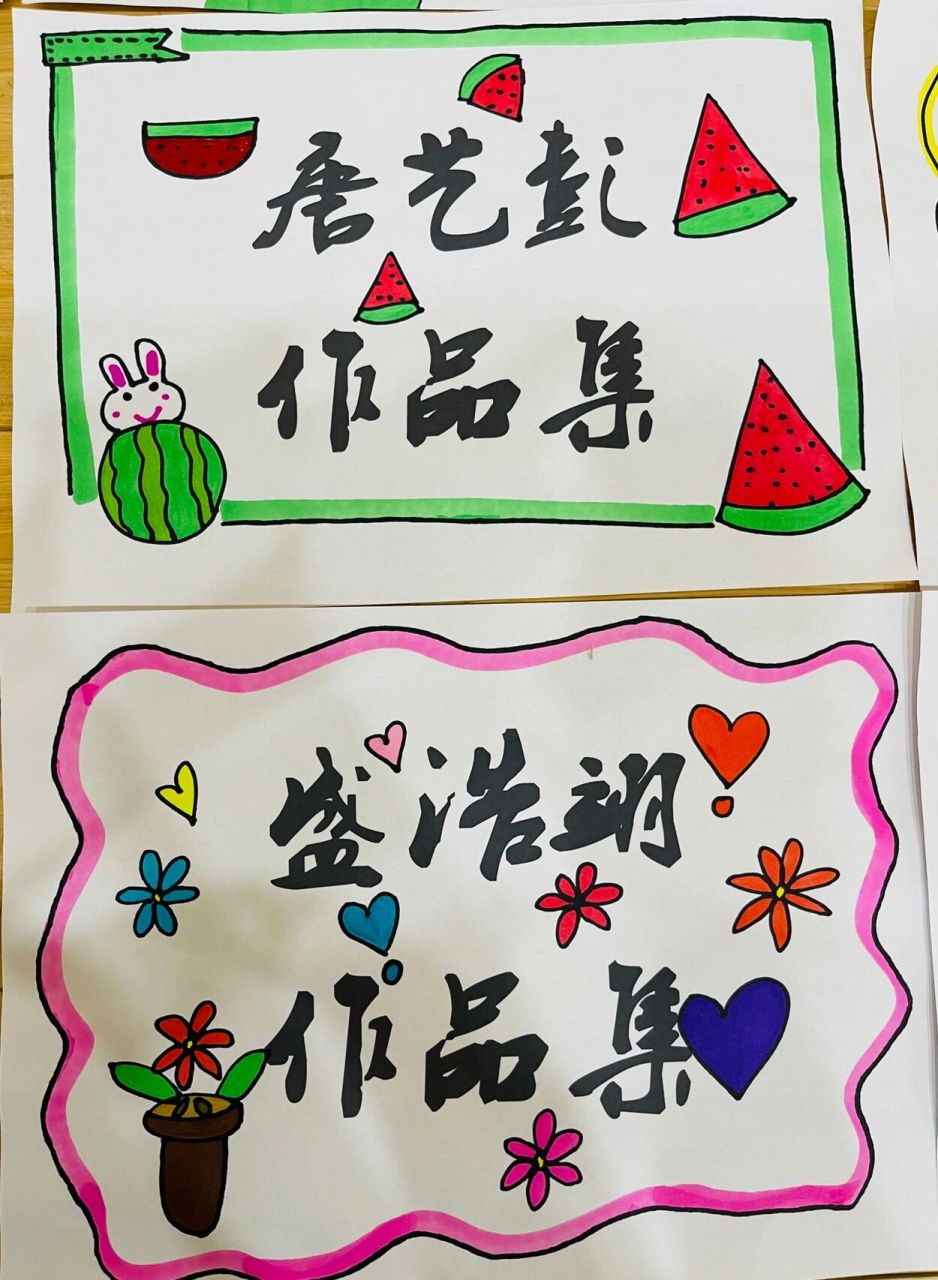 唐艺彭
作品集
盛浩翊
作品集